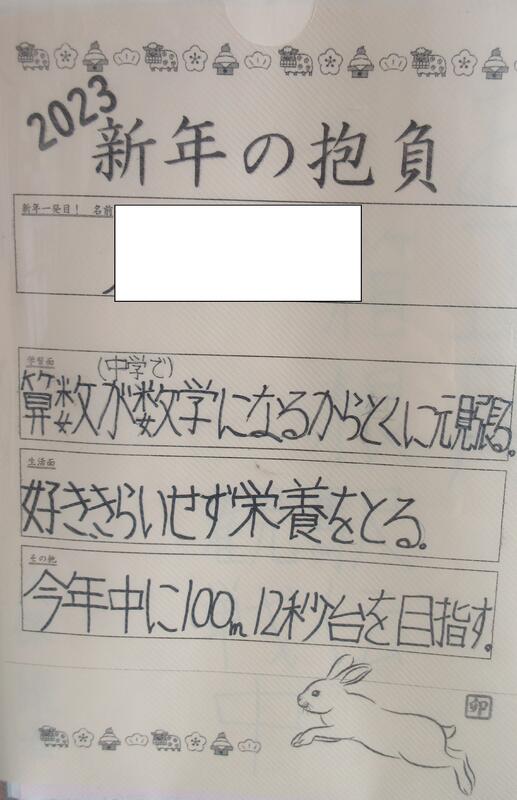 2023
新年の抱負
新年一発目! 名前
学習面
(中学で)
算数が数学になるからとくに元見張る。
生活面
好ききらいせず栄養をとる。
その他
今年中に100m12秒台を目指す。
卯